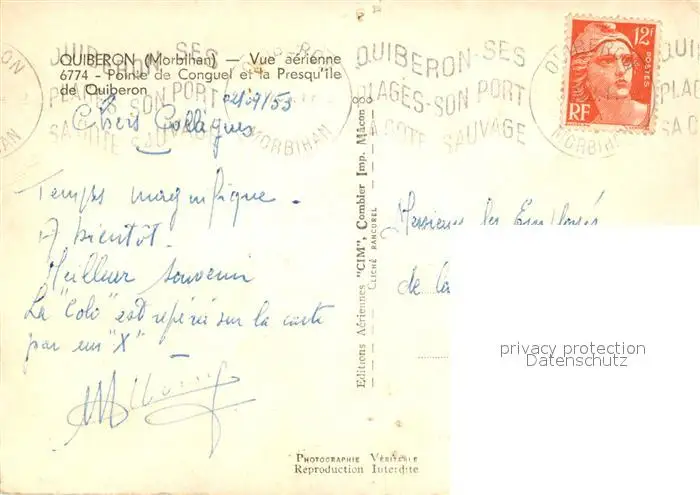 QUIBERON (Morbihan) — Vue aérienne
6774 - Pointe de Conguel et la Presqu'île
de Quiberon
QUIBERON-SES
PLAGES-SON PORT
SA COTE SAUVAGE
QUIBERON
MORBIHAN
12F
POSTES
RF
02/09/53
Chers Collègues
Temps magnifique.
A bientôt.
Meilleur souvenir
La "Colo" est repéré sur la carte
par un "X"
Editions Aériennes "CIM", Combier Imp. Macon
CLICHÉ RANCUREL
Messieurs les Employés
de la
privacy protection
Datenschutz
PHOTOGRAPHIE VÉRITABLE
Reproduction Interdite